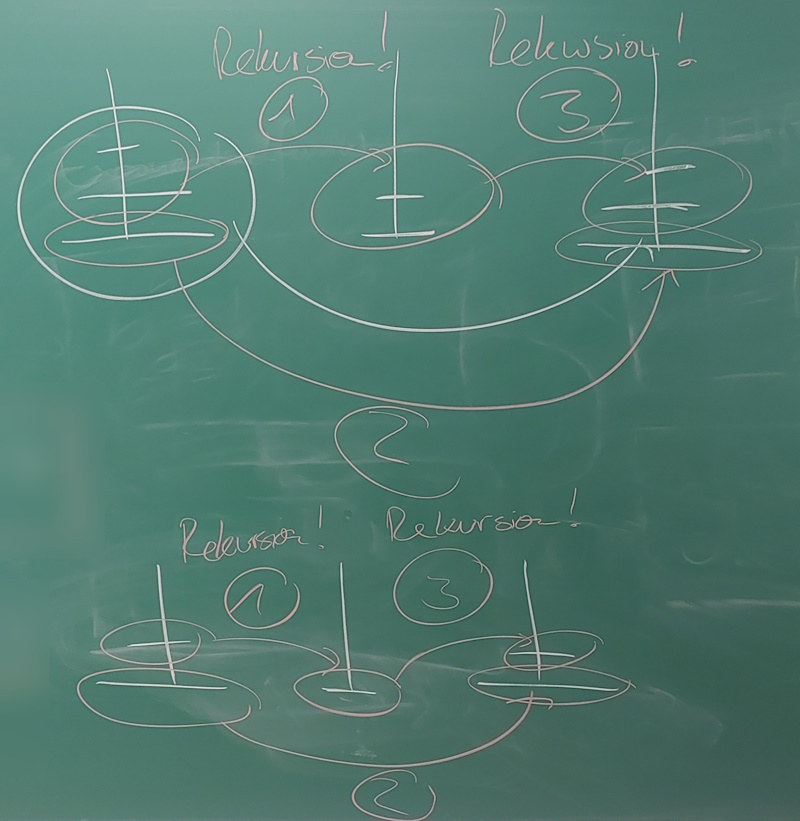 Rekursion! Rekursion!
1 3
2
Rekursion! Rekursion!
1 3
2